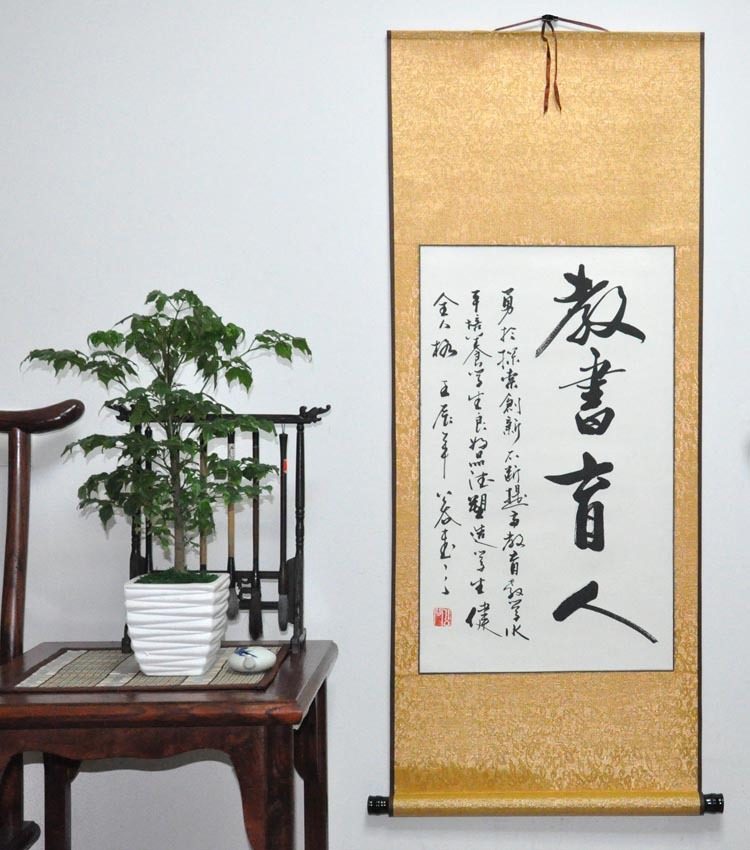 教書育人
勇於探索創新不断提高教育教学水
平培养学生良好品德塑造学生健
全人格 壬辰年